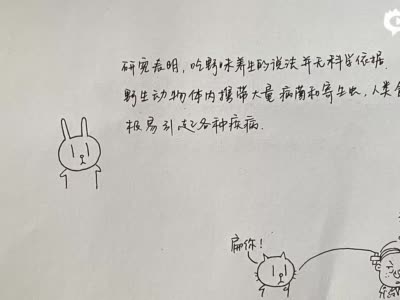 研究表明，吃野味养生的说法并无科学依据，
野生动物体内携带大量病菌和寄生虫，人类食
极易引起各种疾病.
扁你！